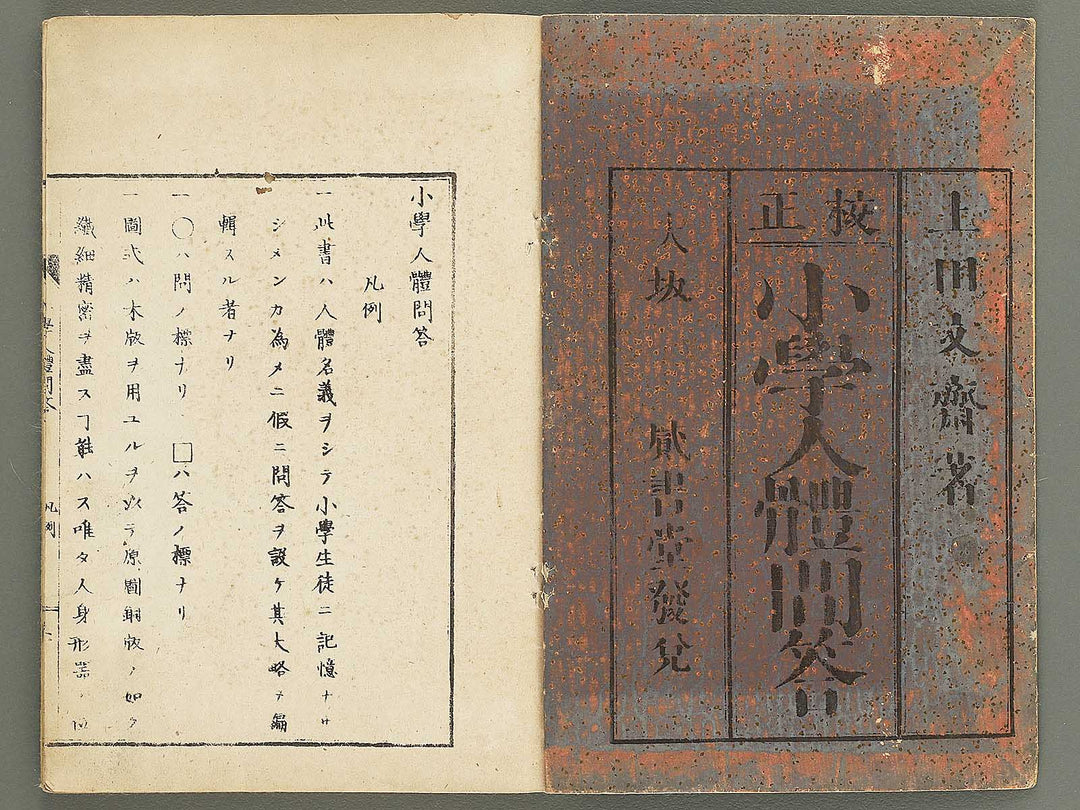 土田文齋著
校正
小學人體問答
大坂 貳書堂發兌
小學人體問答
凡例
一此書ハ人體名義ヲシテ小學生徒ニ記憶ナサ
シメンカ為メニ假ニ問答ヲ設ケ其大略ヲ編
輯スル者ナリ
一〇ハ問ノ標ナリ 囗ハ答ノ標ナリ
一圖式ハ木版ヲ用ユルヲ以テ原圖銅版ノ如ク
纖細精密ヲ盡スヿ能ハス唯タ人身形器ノ位
小學人體問答 凡例